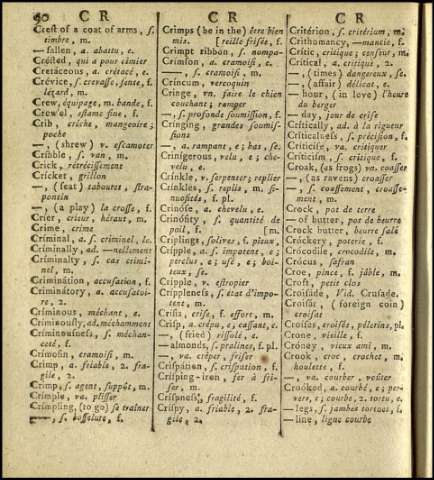 CR
CR
CR
Crest of a coat of arms, s.
timbre, m.
— fallen, a. abattu, e.
Crésted, qui a pour cimier
Cretáceous, a. crétacé, e.
Crévice, s. crevasse, fente, f.
lézard, m.
Crew, équipage, m. bande, f.
Crew'el, estame fine, f.
Crib, crèche, mangeoire;
poche
—, (shrew) v. escamoter
Cribble, s. van, m.
Crick, rétrécissement
Crícket, grillon
—, (seat) tabouret, stra-
pontin
—, (a play) la crosse, f.
Crier, crieur, héraut, m.
Crime, crime
Críminal, a. s. criminel, le.
Críminally, ad. —nellement
Críminalty, s. cas crimi-
nel, m.
Criminátion, accusation, f.
Críminatory, a. accusatoi-
re, 2.
Críminous, méchant, e.
Críminously, ad. méchamment
Críminousness, s. méchan-
ceté, f.
Crímosin, cramoisi, m.
Crimp, a. friable, 2. fra-
gile, 2.
Crimp, s. agent, suppôt, m.
Crimple, va. plisser
Crímpling, (to go) se traîner
Crimps (he in the) être bien
mis. [reille frisée, f.
Crimpt ribbon, s. nompa-
Crímson, a. cramoisi, e.
—, s. cramoisi, m.
Crincum, vercoquin
Cringe, vn. faire le chien
couchant; ramper
—, s. profonde soumission, f.
Crínging, grandes soumis-
sions
—, a. rampante, e; bas, se.
Crinígerous, velu, e; che-
velu, e.
Crínkle, v. serpenter; replier
Crínkles, s. replis, m. si-
nuosités, f. pl.
Crinóse, a. chevelu, e.
Crinósity, s. quantité de
poil, f. [m.
Criplings, solives, f. pieux,
Cripple, a. s. impotent, e;
perclus, e; usé, e; boi-
teux, se.
Cripple, v. estropier
Crippleness, s. état d'impo-
tent, m.
Crisis, crise, f. effort, m.
Crisp, a. crêpu, e; cassant, e.
—, (fried) rissolé, e.
—almonds, s. pralines, f. pl.
—, va. crêper, friser
Crispátion, s. crispation, f.
Crísping-iron, fer à fri-
ser, m.
Críspness, fragilité, f.
Críspy, a. friable, 2. fra-
gile, 2.
Critérion, s. critérium, m.
Críthomancy, —mancie, f.
Crític, critique; censeur, m.
Crítical, a. critique, 2.
—, (times) dangereux, se.
—, (affair) délicat, e.
— hour, (in love) l'heure
du berger
— day, jour de crise
Crítically, ad. à la rigueur
Críticalness, s. précision, f.
Críticise, va. critiquer
Críticism, s. critique, f.
Croak, (as frogs) vn. coasser
—, (as ravens) croasser
—, s. coassement, croasse-
ment, m.
Crock, pot de terre
— of butter, pot de beurre
Crock butter, beurre salé
Cróckery, poterie, f.
Crócodile, crocodile, m.
Crócus, safran
Croe, pince, f. jable, m.
Croft, petit clos
Croisáde, Vid. Crusade.
Croisát (foreign coin)
croisat
Croises, croisés, pélerins, pl.
Crone, vieille, f.
Cróney, vieux ami, m.
Crook, croc, crochet, m.
houlette, f.
—, va. courber, voûter
Croóked, a. courbé, e; per-
vers, e; courbe, 2. tortu, e.
—legs, s. jambes tortues, f.
— line, ligne courbe